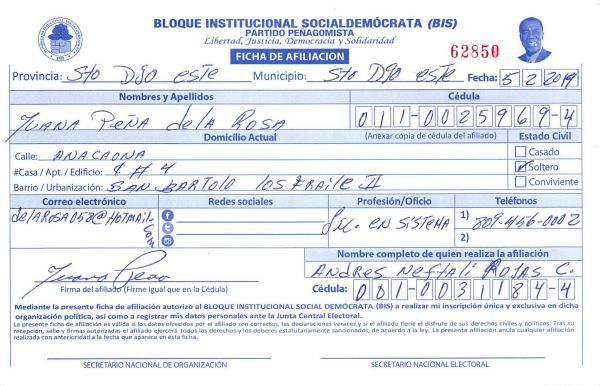 BLOQUE INSTITUCIONAL SOCIALDEMÓCRATA (BIS)
PARTIDO PEÑAGOMISTA
Libertad, Justicia, Democracia y Solidaridad
FICHA DE AFILIACION
62850
Provincia: Sto Dgo este Municipio: Sto Dgo este Fecha: 5/2/2019
Nombres y Apellidos Cédula
Juana Peña de la Rosa 011-0025969-4
(Anexar copia de cédula del afiliado)
Domicilio Actual Estado Civil
Calle: ANACAONA Casado
#Casa / Apt. / Edificio: # 4 Soltero
Barrio / Urbanización: SAN BARTOLO los FRAILE II Conviviente
Correo electrónico Redes sociales Profesión/Oficio Teléfonos
delAROSA058@HOTMAIL.com Lic. EN SISTEMA 1) 809-456-0002
2)
Nombre completo de quien realiza la afiliación
Juana Peña Andres Neftali Rojas C.
Firma del afiliado (Firme igual que en la Cédula) Cédula: 001-0031184-4
Mediante la presente ficha de afiliación autorizo al BLOQUE INSTITUCIONAL SOCIAL DEMÓCRATA (BIS) a realizar mi inscripción única y exclusiva en dicha
organización política, así como a registrar mis datos personales ante la Junta Central Electoral.
La presente ficha de afiliación es válida si los datos ofrecidos por el afiliado son correctos, las declaraciones veraces y si el afiliado tiene el disfrute de sus derechos civiles y políticos. Tras su
recepción, sello y firmas autorizadas el afiliado ejercerá todos los derechos y los deberes estatutariamente sancionados, de acuerdo a la ley. La presente afiliación anula cualquier afiliación
realizada con anterioridad a la fecha que aparece en esta ficha.
SECRETARIO NACIONAL DE ORGANIZACIÓN SECRETARIO NACIONAL ELECTORAL